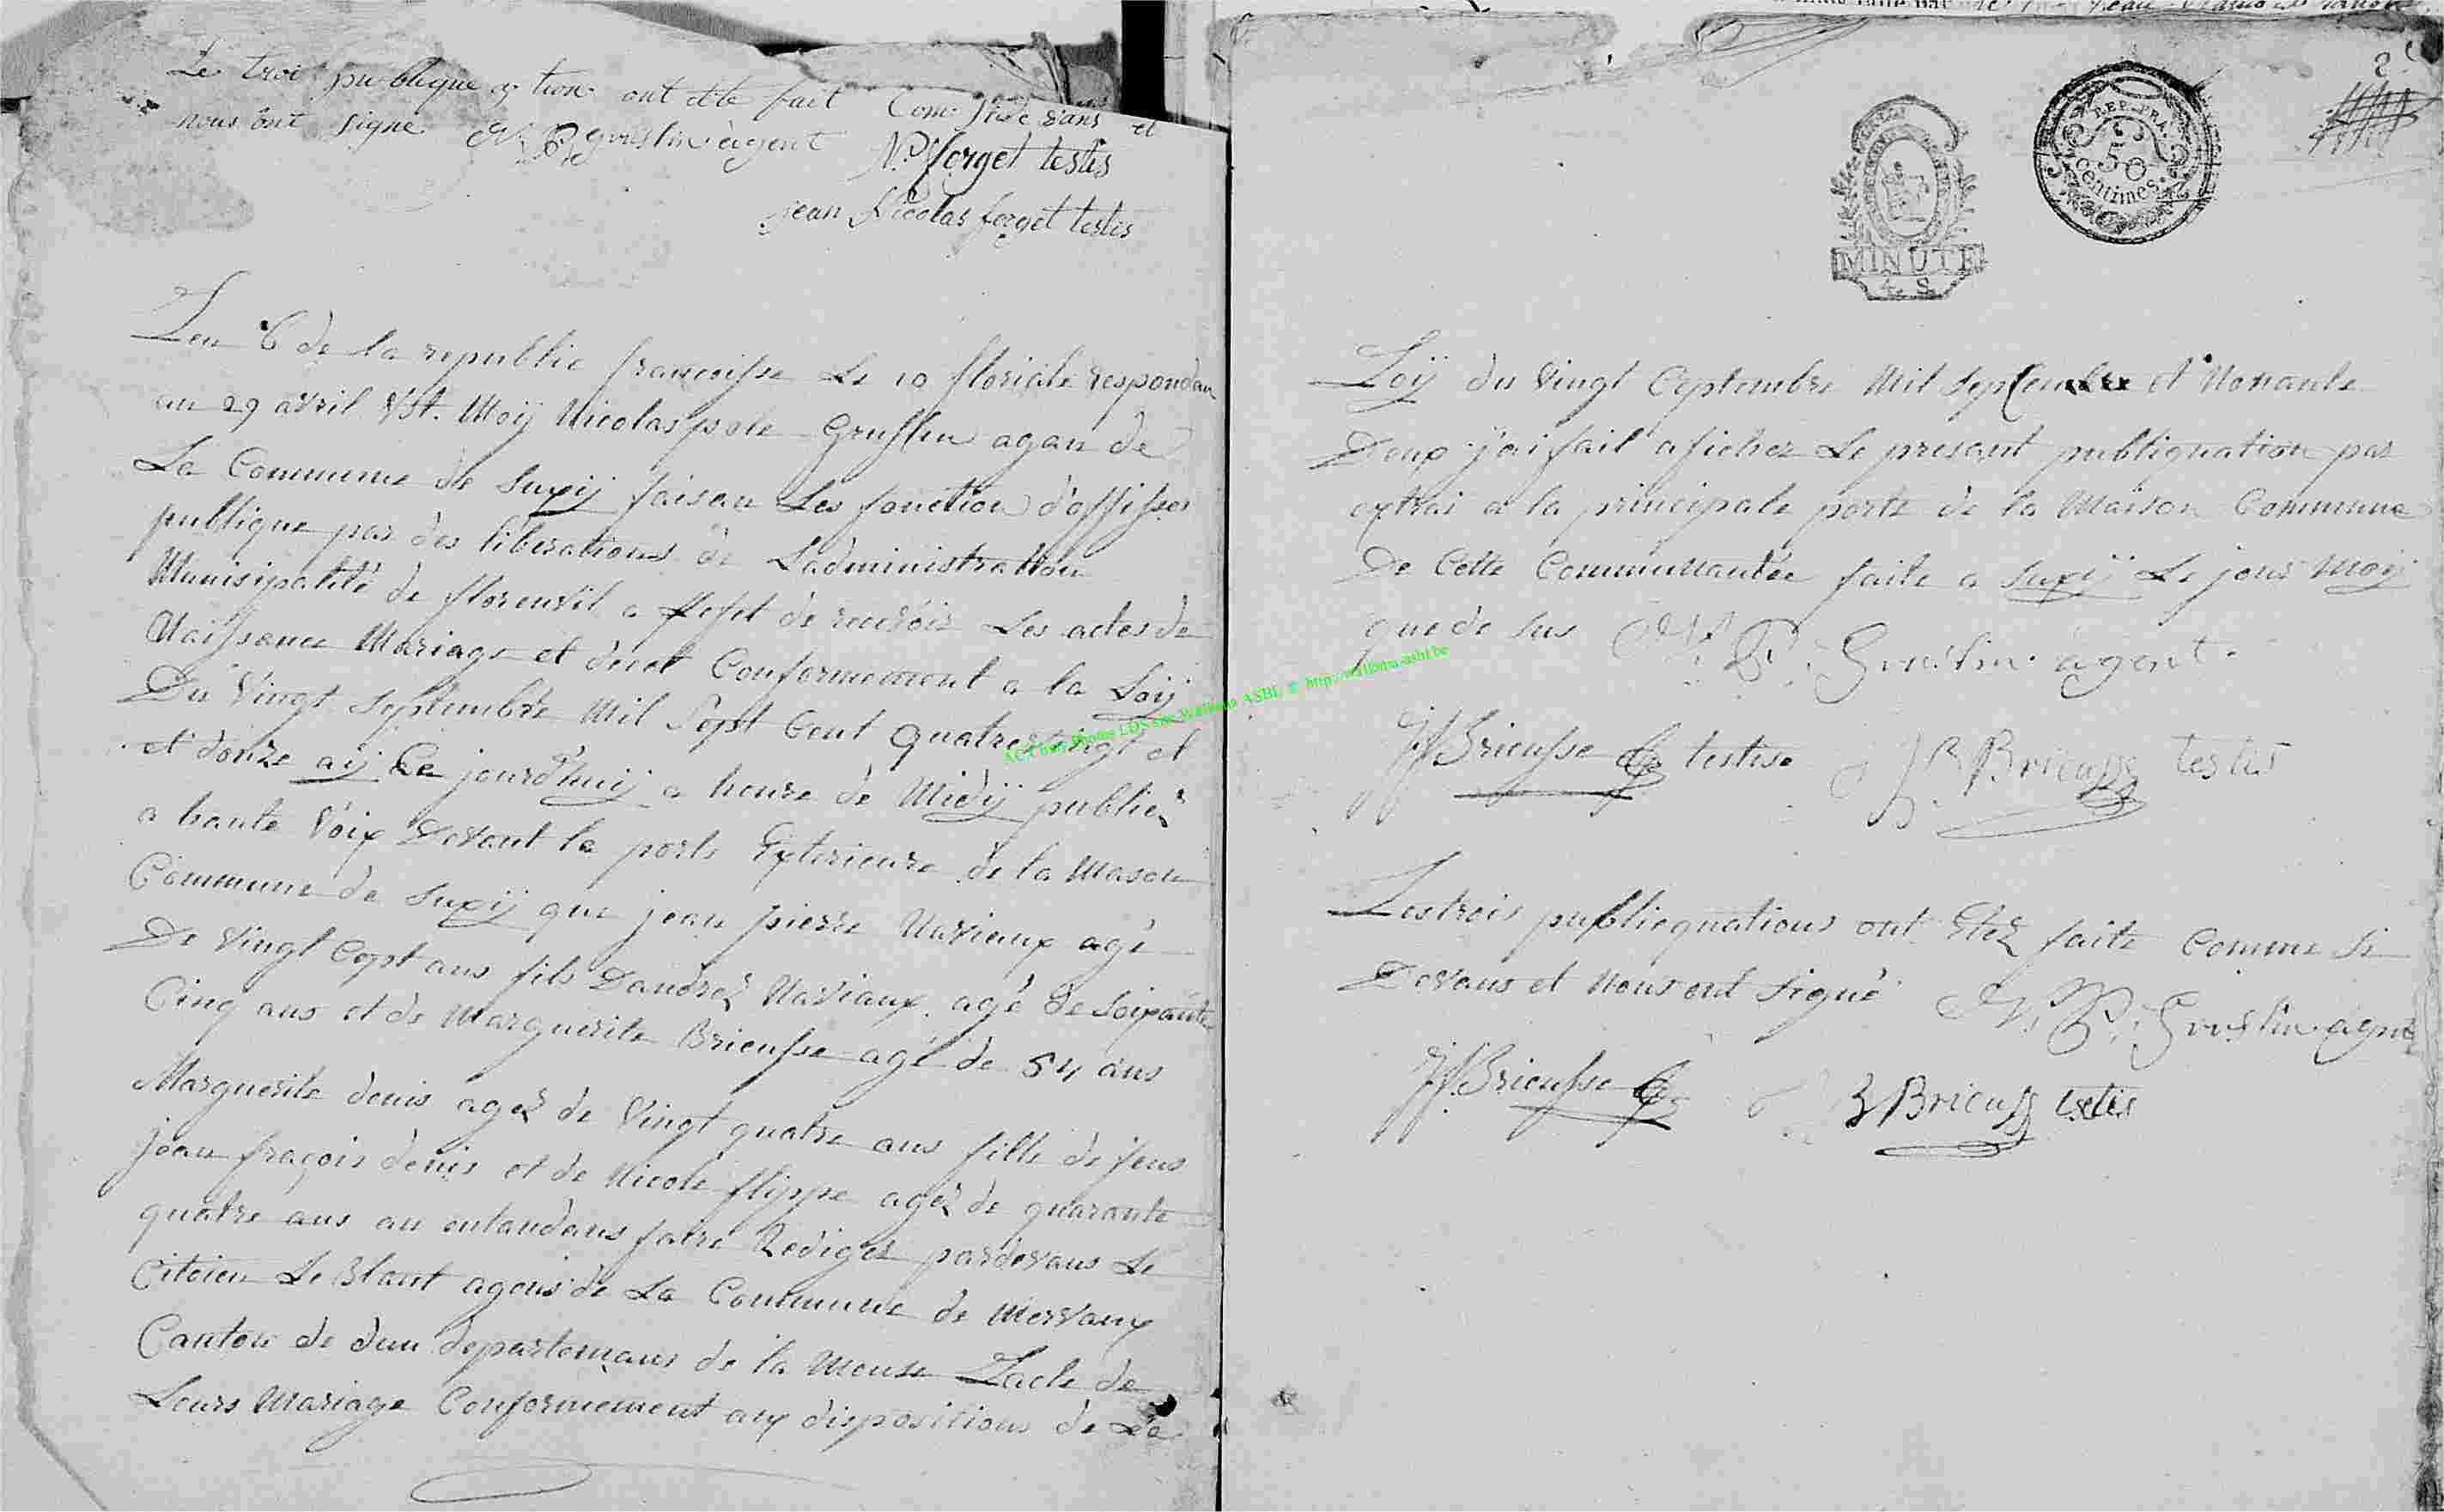 Le troi publique a tion ont ete fait Com si de vans et
nous ont signe N P Gouslin agent N P forget testis
jean Nicolas forget testis
Leu 6 de la republic francoisse Le 10 floriale respondan
au 29 avril VSt. Moÿ Nicolas pole Grusslin agan de
La Commune de Suxÿ faisan Les fonction d'offisser
publique par des liberations de Ladministration
Munisipalité de florenvil a l'efet de recevoir Les actes de
Naissance Mariage et decet Conformement a la Loÿ
Du Vingt Septembre Mil Sept Cent quatrevingt et
et donze aÿ Ce jourd'huiÿ a heure de Midÿ publiez
a haute Voix Devant la porte Exterieure de la Mason
Commune de Suxÿ que jean pierre Naviaux agé
De Vingt Cept ans fils Dandrez Naviaux agé de Soixante
Cinq ans et de Marguerite Brieusse agé de 54 ans
Marguerite denis agez de Vingt quatre ans fille de feus
jean fraçois denis et de Nicole flippe agéz de quarante
quatre ans au entandans faire Rediger pardevans Le
Citoien Le Blant agens de La Commune de Mervaux
Canton de dun departemans de la Meuse Lacte de
Leurs Mariage Conformement aux dispositions de La
8
REP. FRA.
50
Centimes.
MINUTE
4 S
Loÿ du Vingt Ceptembre Mil Septcent et Nonante
Deux j'ai fait aficher Le present publiquation par
extrai a la principale porte de la Maison Commune
De Cette Communantée faite a Suxÿ Le jour Moÿ
que de sus N. P. Gouslin agent.
ACA hap Photos LDS site Wallonia ASBL © http://wallonia-asbl.be
JJ Brieusse testis o J B Brieuss testis
Les trois publiequations ont Etez faite Comme Si
Devans et Nous ont Signé N. P. Gouslin agent
JJ Brieusse o B Brieuss testis